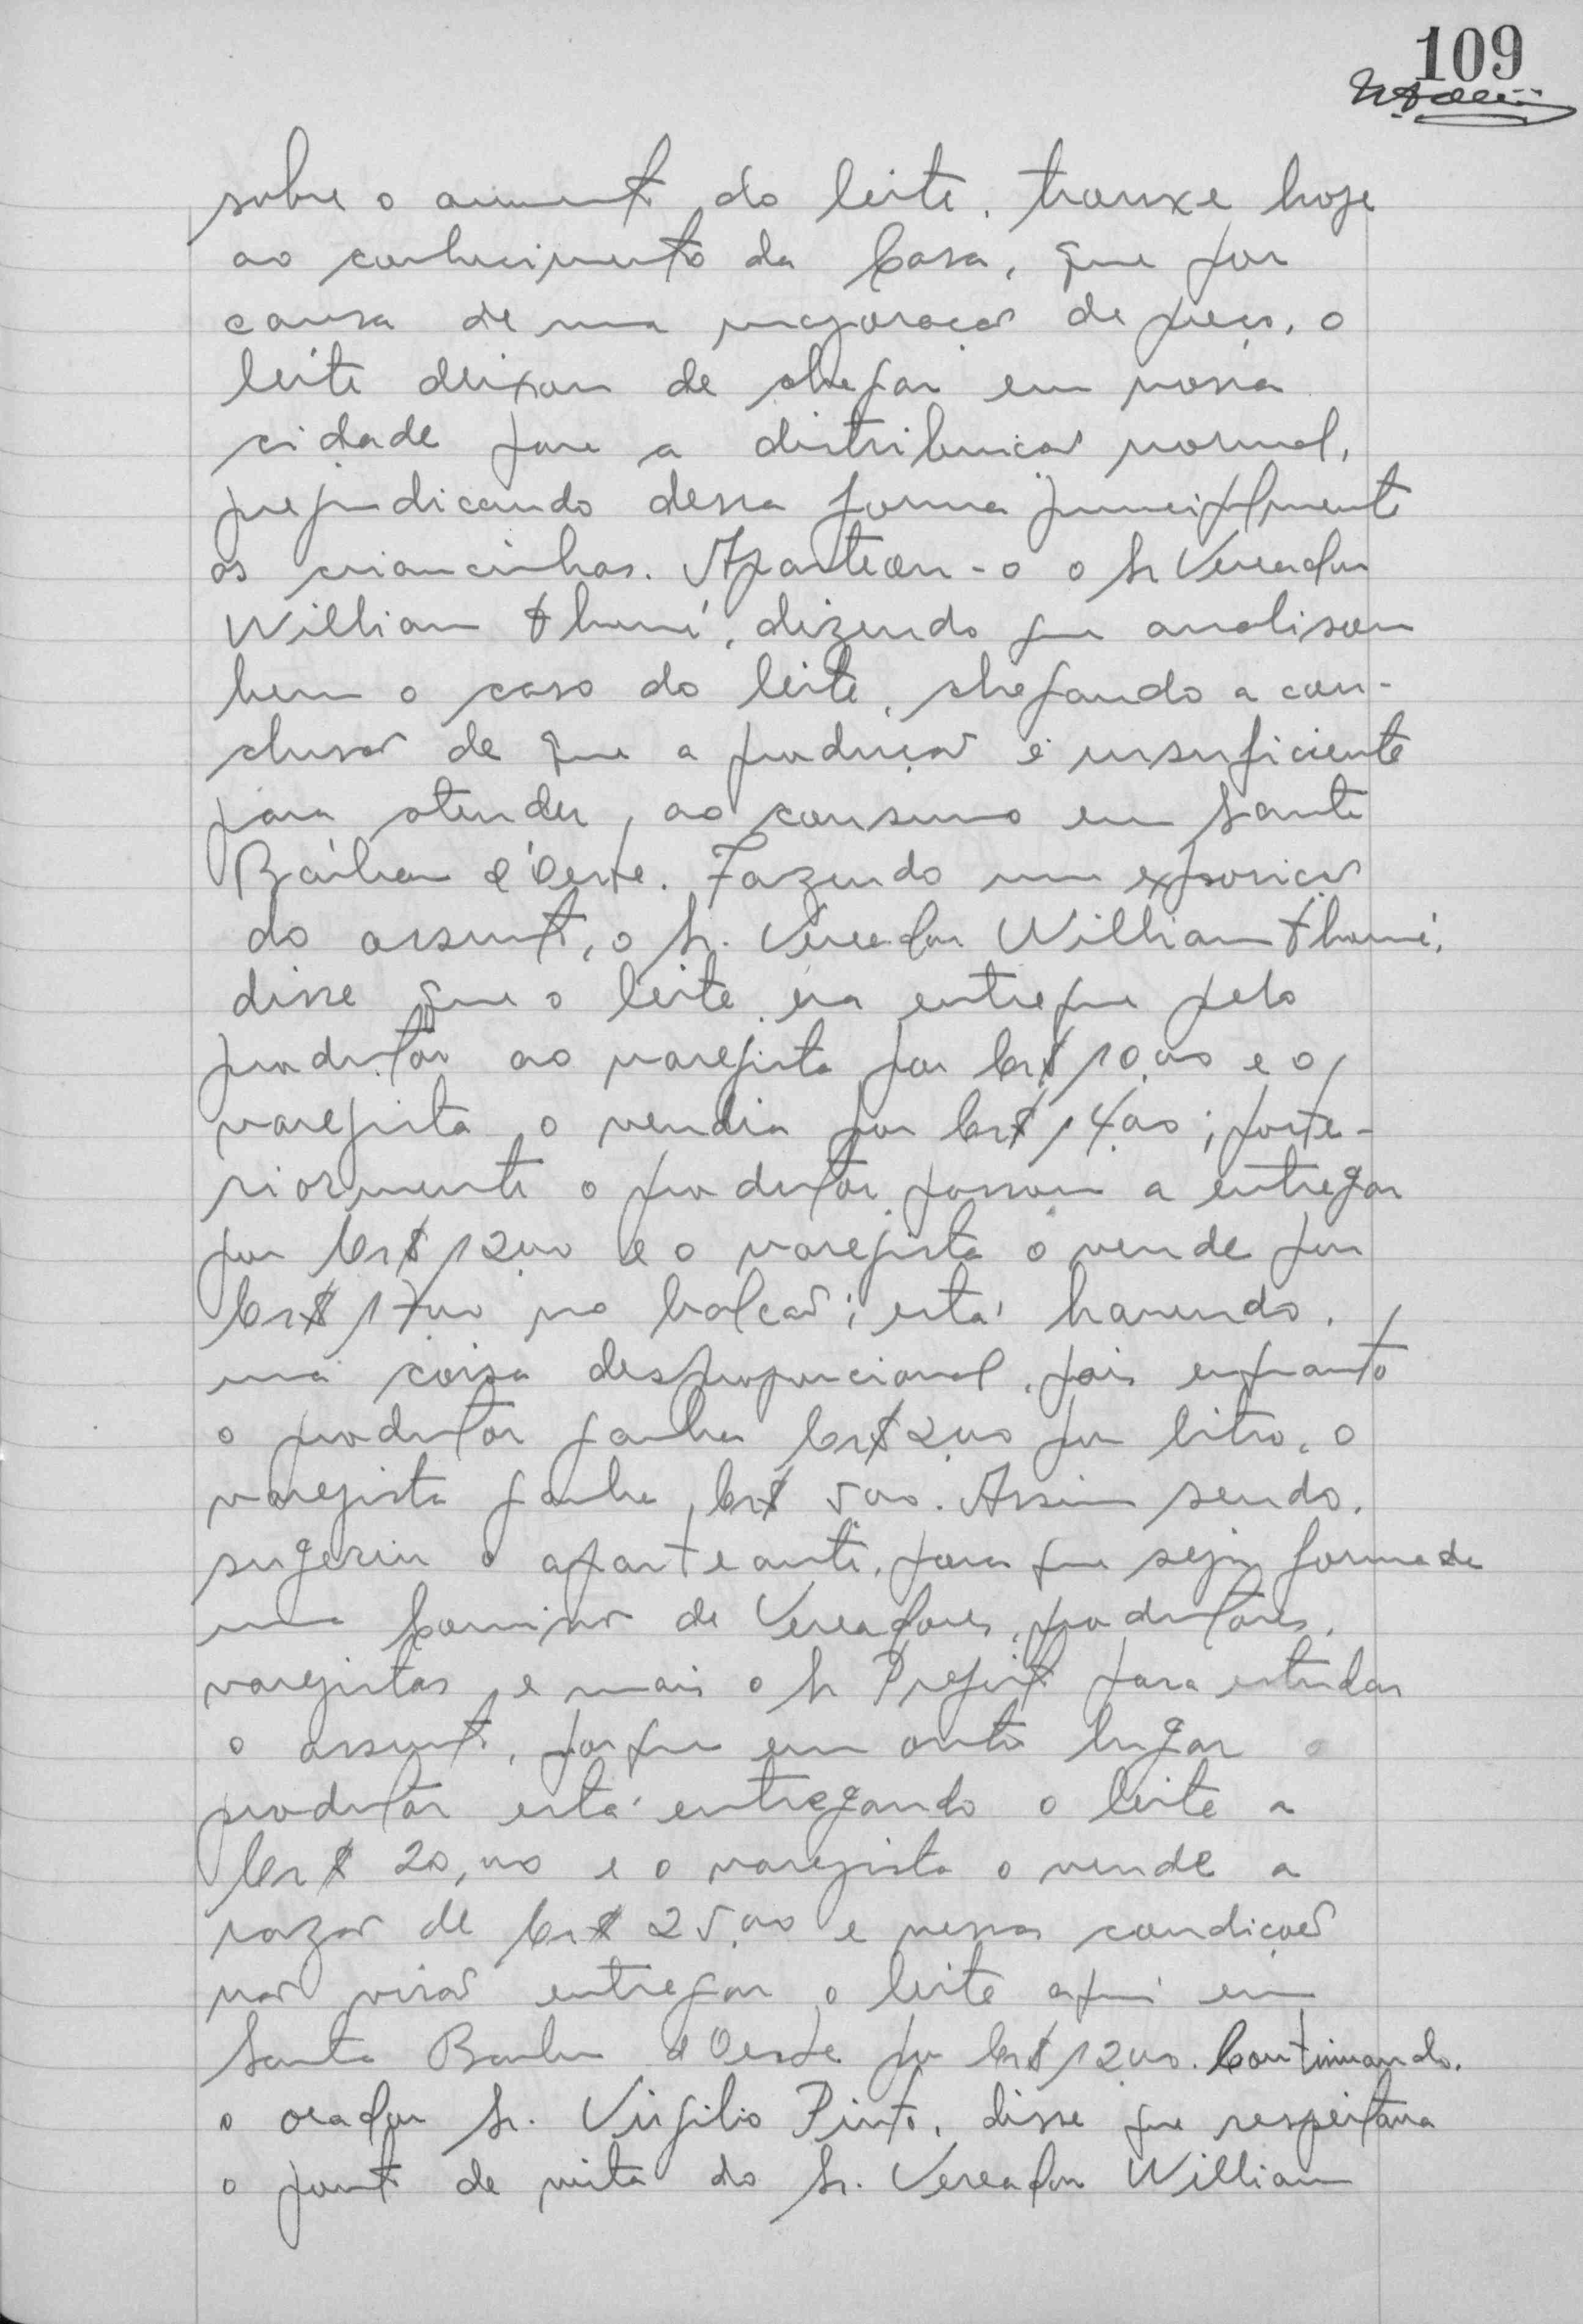 109
sobre o aumento do leite, trouxe hoje
ao conhecimento da Casa, que por
causa de uma majoração de preço, o
leite deixou de chegar em nossa
cidade para a distribuição normal,
prejudicando dessa forma principalmente
as criancinhas. Aparteou-o o Sr Vereador
William Thomé, dizendo que analisou
bem o caso do leite, chegando a con-
clusão de que a produção é insuficiente
para atender, ao consumo em Santa
Bárbara d'Oeste. Fazendo uma exposição
do assunto, o Sr. Vereador William Thomé,
disse que o leite era entregue pelo
produtor ao varejista por Cr$ 10,00 e o
varejista o vendia por Cr$ 14,00; poste-
riormente o produtor passou a entregar
por Cr$ 12,00 e o varejista o vende por
Cr$ 17,00 no balcão; está havendo,
uma coisa desproporcional, pois enquanto
o produtor ganha Cr$ 2,00 por litro, o
varejista ganha Cr$ 5,00. Assim sendo,
sugeriu o aparteante, para que seja formada
uma Comissão de Vereadores, produtores,
varejistas e mais o Sr Prefeito para estudar
o assunto, porque em outro lugar o
produtor está entregando o leite a
Cr$ 20,00 e o varejista o vende a
razão de Cr$ 25,00 e nessas condições
não virão entregar o leite aqui em
Santa Barbara d'Oeste por Cr$ 12,00. Continuando,
o orador Sr. Virgilio Pinto, disse que respeitava
o ponto de vista do Sr. Vereador William